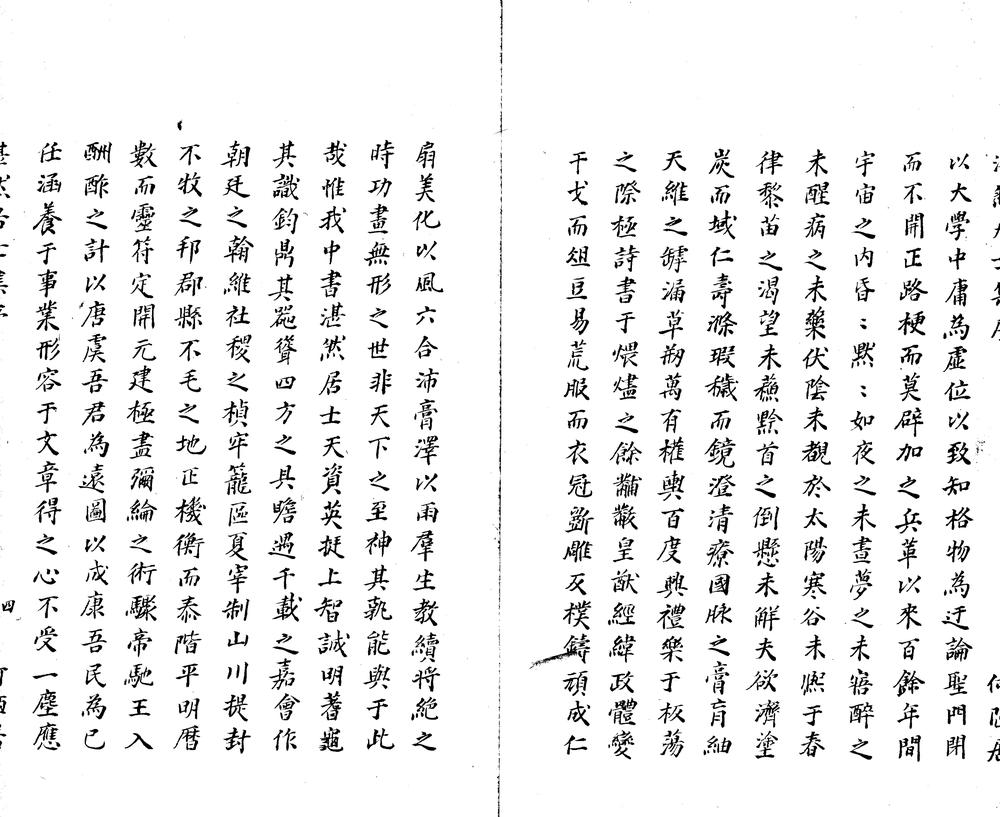 以大學中庸為虛位以致知格物為迂論聖門閉
而不開正路梗而莫辟加之兵革以來百餘年間
宇宙之內昏:黙:如夜之未晝夢之未寤醉之
未醒病之未藥伏陰未覩於太陽寒谷未煦于春
律黎苗之渴望未蘓黔首之倒懸未解夫欲濟塗
炭而域仁壽滌瑕穢而鏡澄清療國脉之膏肓紬
天維之罅漏草剏萬有權輿百度興禮樂于板蕩
之際極詩書于煨燼之餘黼黻皇猷經緯政體變
干戈而爼豆易荒服而衣冠斵雕反樸鑄頑成仁
扇美化以風六合沛膏澤以雨羣生教續將絶之
時功畫無形之世非天下之至神其孰能與于此
哉惟我中書湛然居士天資英挺上智誠明蓍龜
其識鈞鼎其器聳四方之具瞻遇千載之嘉會作
朝廷之翰維社稷之楨牢籠區夏宰制山川提封
不牧之邦郡縣不毛之地正機衡而泰階平明曆
數而靈符定開元建極盡彌綸之術驟帝馳王入
酬酢之計以唐虞吾君為遠圖以成康吾民為已
任涵養于事業形容于文章得之心不受一塵應
四